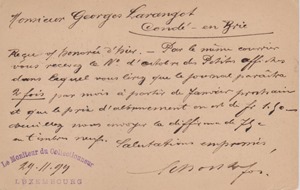 Monsieur Georges Larangot
Condé-en-Brie
Reçu honorée d'hier. - Par le même courrier
vous recevez le N° d'octobre de Petites affiches
dans lequel vous lirez que le journal paraîtra
2 fois par mois à partir de Janvier prochain
et que le prix d'abonnement en est de fr
veuillez nous envoyer la différence de
en timbres neufs. Salutations empressées,
Le Moniteur du Collectionneur
29.11.94
LUXEMBOURG